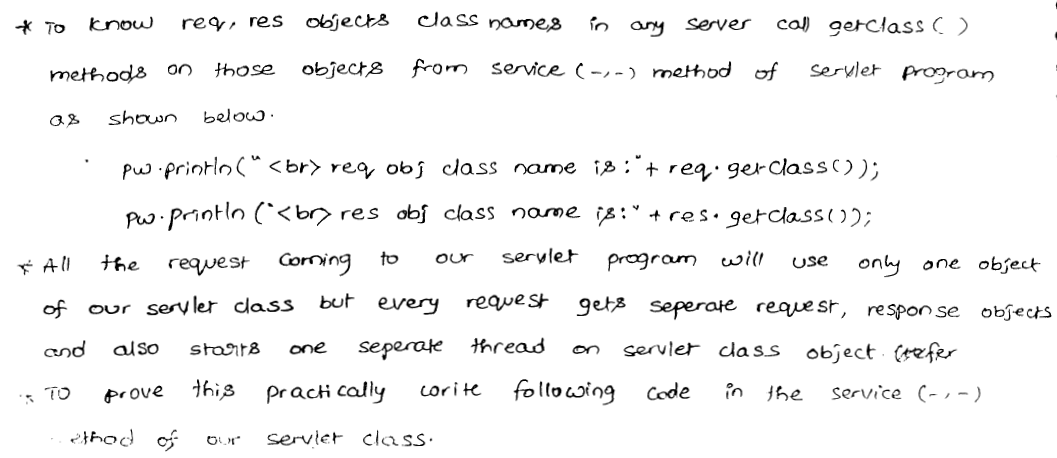 * To know req, res objects class names in any server call getclass ( )
methods on those objects from service (-,-) method of servlet program
as shown below.
pw.println("<br> req obj class name is:"+ req.getClass());
pw.println("<br> res obj class name is:"+res.getclass());
* All the request coming to our servlet program will use only one object
of our servlet class but every request gets seperate request, response objects
and also starts one seperate thread on servlet class object. (refer
* To prove this practically write following code in the service (-,-)
ethod of our servlet class.